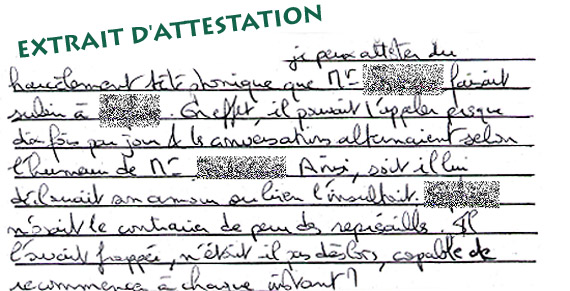 EXTRAIT D'ATTESTATION
je peux attester du
harcèlement téléphonique que Mr faisait
subir à . En effet, il pouvait l'appeler presque
dix fois par jour & les conversations alternaient selon
l'humeur de Mr Ainsi, soit il lui
déclarait son amour ou bien l'insultait.
n'osait le contrarier de peur des représailles. Il
l'avait frappée, n'était il pas dès lors, capable de
recommencer à chaque instant ?